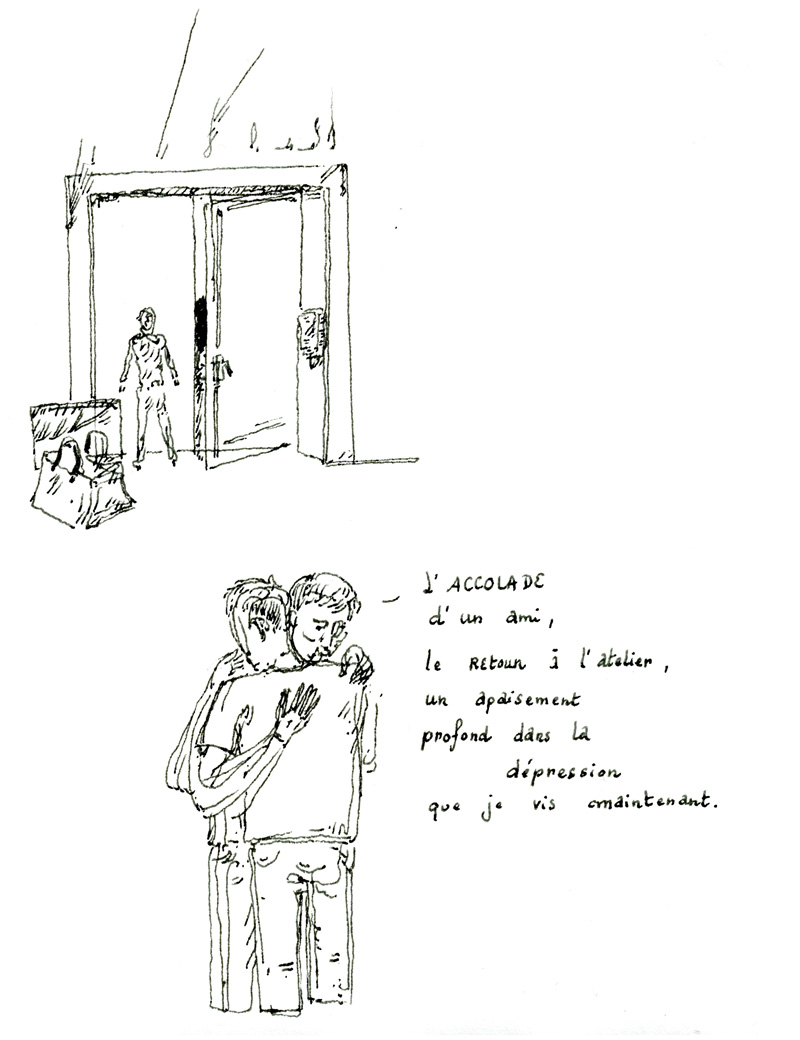 L'ACCOLADE
d'un ami,
le REtouR à l'atelier,
un apaisement
profond dans la
dépression
que je vis maintenant.